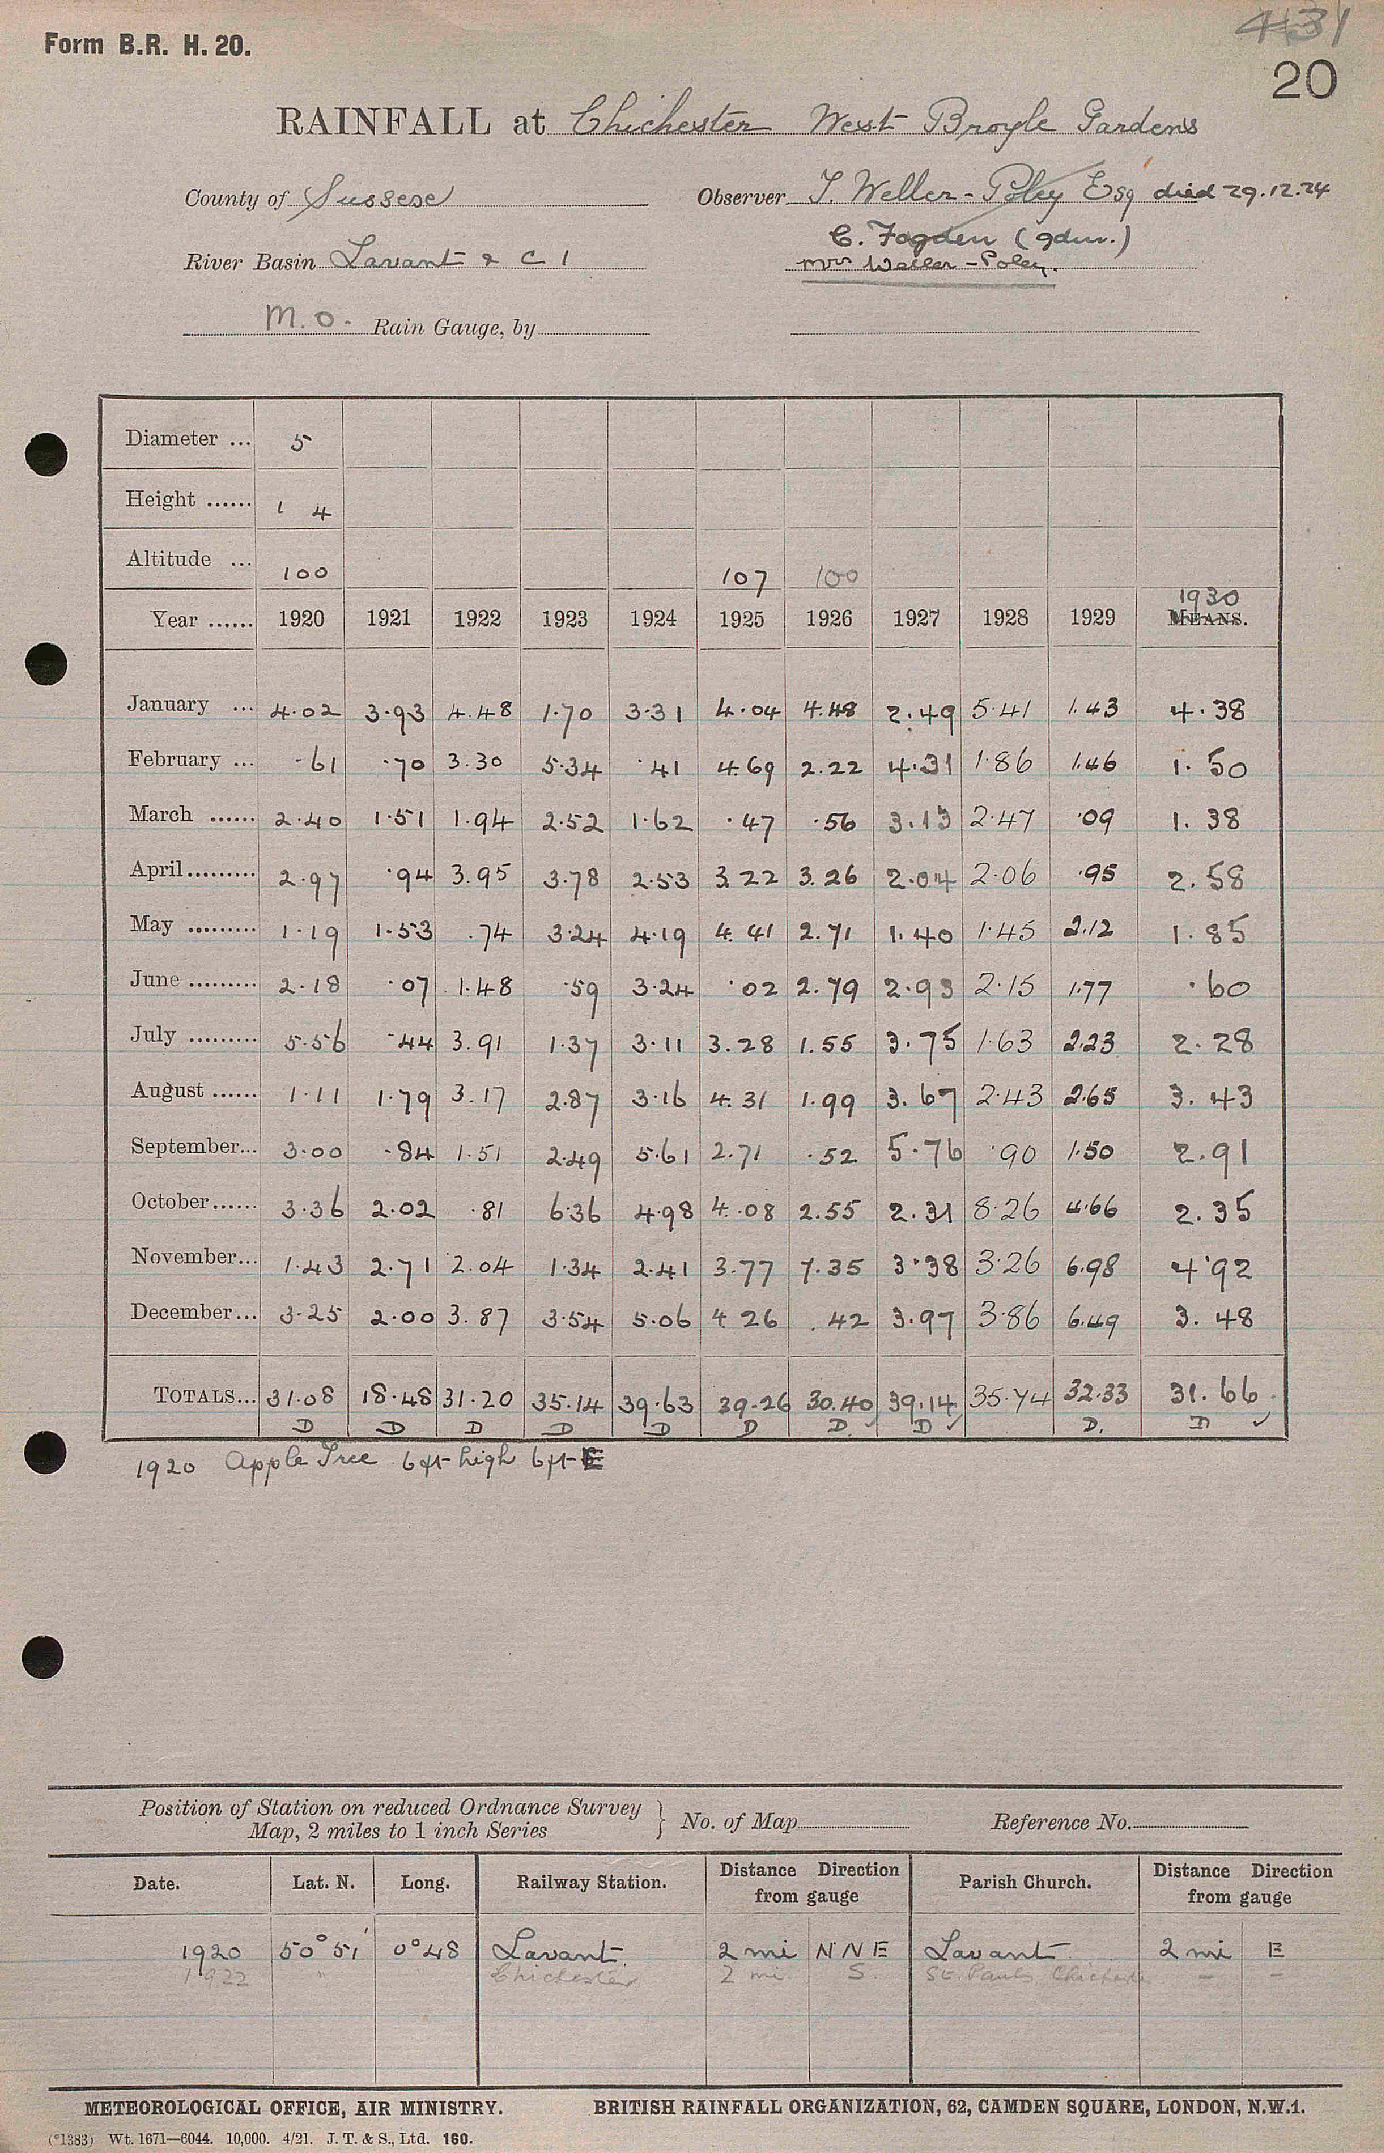 431
Form B.R. H. 20.
20
RAINFALL at Chichester West Broyle Gardens
County of Sussex Observer T. Weller-Poley Esq died 29.12.24
C. Fogden (gdnr.)
River Basin Lavant & C 1 Mrs Weller-Poley.
M.O. Rain Gauge, by
Diameter ... 5
Height ...... 1 4
Altitude ... 100 107 100
1930
Year ...... 1920 1921 1922 1923 1924 1925 1926 1927 1928 1929 MEANS.
January ... 4.02 3.93 4.48 1.70 3.31 4.04 4.48 2.49 5.41 1.43 4.38
February ... .61 .70 3.30 5.34 .41 4.69 2.22 4.31 1.86 1.46 1.50
March ...... 2.40 1.51 1.94 2.52 1.62 .47 .56 3.13 2.47 .09 1.38
April......... 2.97 .94 3.95 3.78 2.53 3.22 3.26 2.04 2.06 .95 2.58
May ......... 1.19 1.53 .74 3.24 4.19 4.41 2.71 1.40 1.45 2.12 1.85
June ......... 2.18 .07 1.48 .59 3.24 .02 2.79 2.93 2.15 1.77 .60
July ......... 5.56 .44 3.91 1.37 3.11 3.28 1.55 3.75 1.63 2.23 2.28
August ...... 1.11 1.79 3.17 2.87 3.16 4.31 1.99 3.67 2.43 2.65 3.43
September... 3.00 .84 1.51 2.49 5.61 2.71 .52 5.76 .90 1.50 2.91
October...... 3.36 2.02 .81 6.36 4.98 4.08 2.55 2.31 8.26 4.66 2.35
November... 1.43 2.71 2.04 1.34 2.41 3.77 7.35 3.38 3.26 6.98 4.92
December... 3.25 2.00 3.87 3.54 5.06 4.26 .42 3.97 3.86 6.49 3.48
TOTALS... 31.08 18.48 31.20 35.14 39.63 39.26 30.40 39.14 35.74 32.33 31.66
D D D D D D D. ✓ D ✓ D. D ✓
1920 Apple Tree 6ft high 6ft E
Position of Station on reduced Ordnance Survey
Map, 2 miles to 1 inch Series } No. of Map Reference No.
Date. Lat. N. Long. Railway Station. Distance Direction from gauge Parish Church. Distance Direction from gauge
1920 50° 51' 0° 48 Lavant. 2 mi N N E Lavant. 2 mi E
1922 " " Chichester 2 mi. S. St. Pauls, Chichester – –
METEOROLOGICAL OFFICE, AIR MINISTRY. BRITISH RAINFALL ORGANIZATION, 62, CAMDEN SQUARE, LONDON, N.W.1.
(*1383) Wt. 1671—6044. 10,000. 4/21. J. T. & S., Ltd. 160.